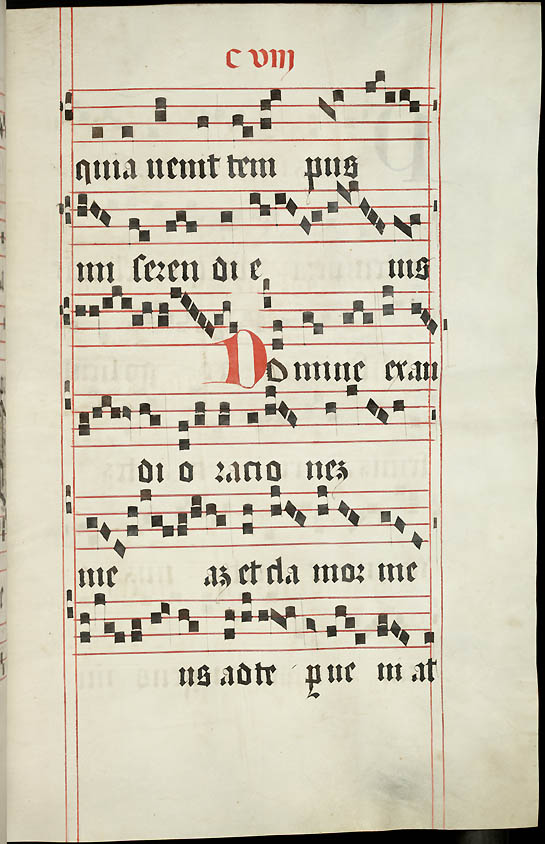 c viij
quia uenit tem pus
mi seren di e ius
Domine exau
di o racio nez
me az et cla mor me
us ad te pue ni at